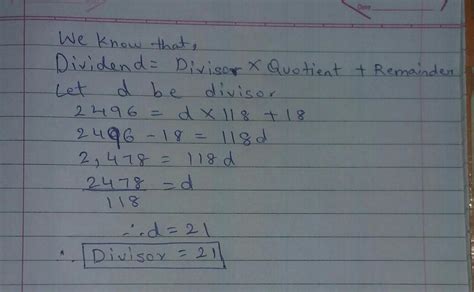 Date
We know that,
Dividend = Divisor × Quotient + Remainder
Let d be divisor
2496 = d × 118 + 18
2496 - 18 = 118d
2,478 = 118d
2478/118 = d
∴ d = 21
∴ Divisor = 21